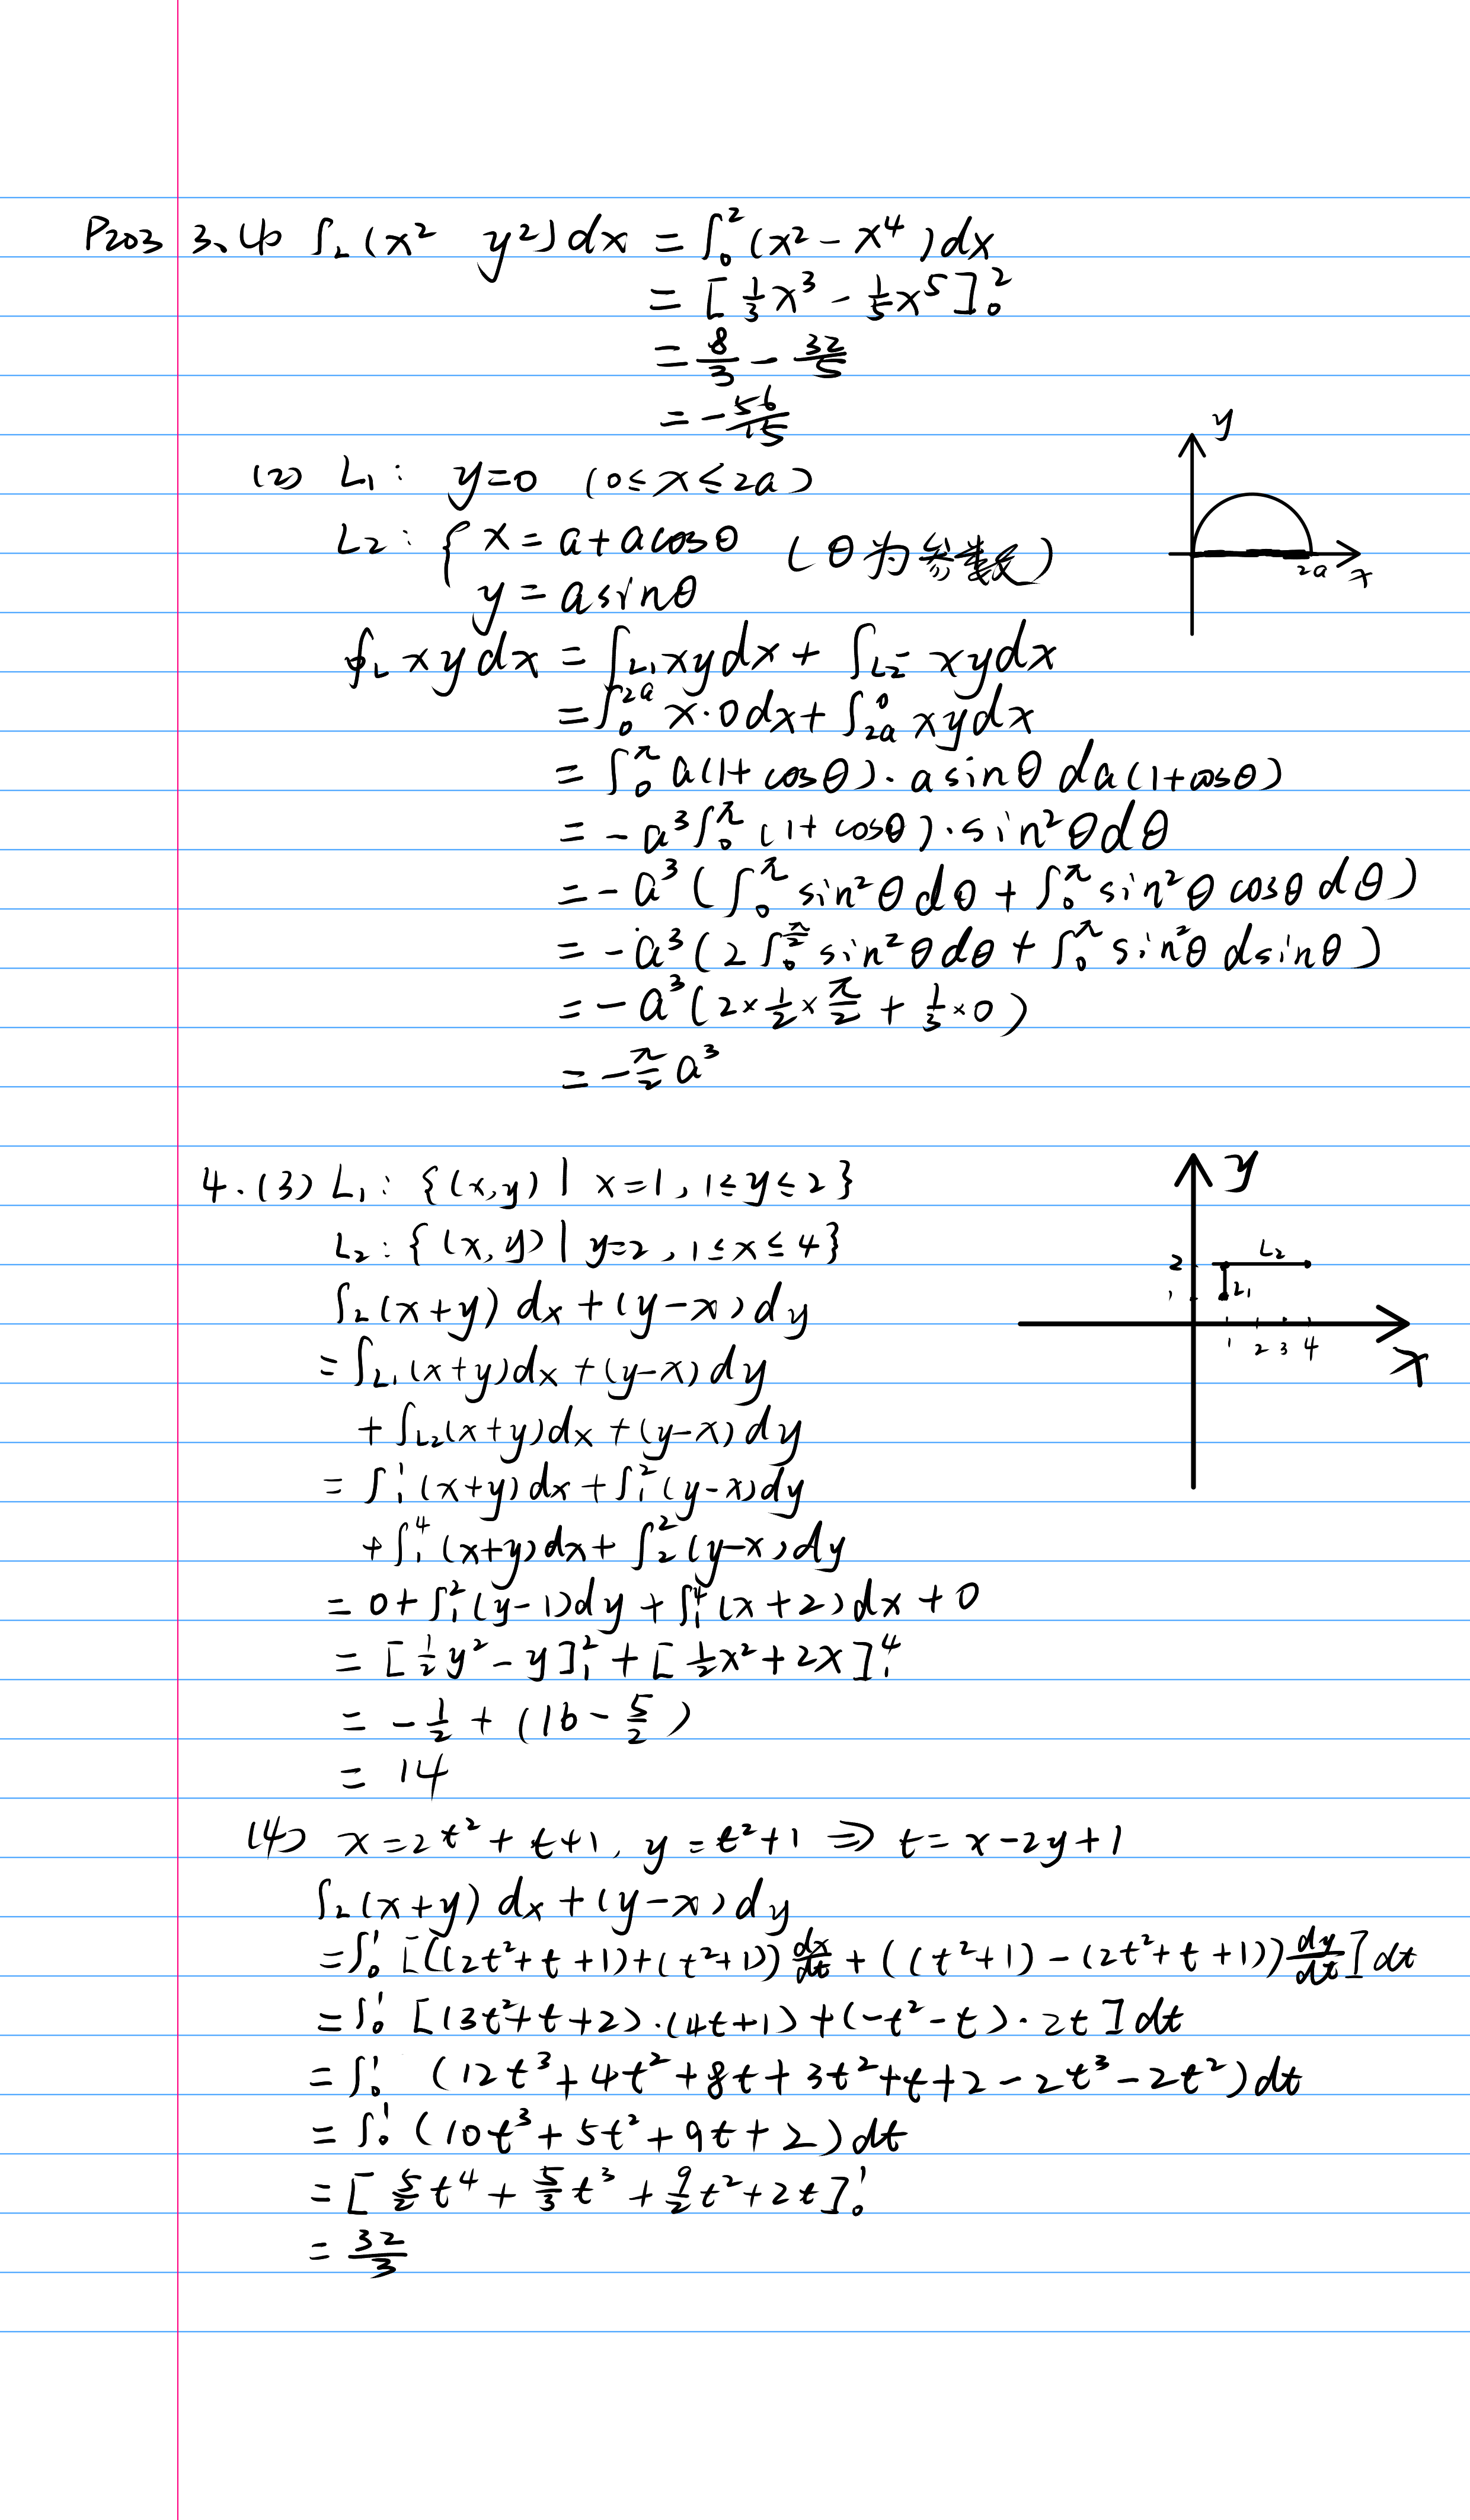 P203 3.(1) ∫_L (x² y²)dx = ∫₀² (x² - x⁴)dx
= [⅓x³ - ⅕x⁵]₀²
= 8/3 - 32/5
= -56/15
y
2a x
(2) L₁: y=0 (0≤x≤2a)
L₂: { x = a+acosθ (θ为参数)
y = asinθ
∮_L xydx = ∫_L₁ xydx + ∫_L₂ xydx
= ∫₀^2a x·0dx + ∫_2a^0 xydx
= ∫₀^π a(1+cosθ)·asinθ da(1+cosθ)
= -a³∫₀^π (1+cosθ)·sin²θdθ
= -a³(∫₀^π sin²θdθ + ∫₀^π sin²θcosθdθ)
= -a³(2∫₀^(π/2) sin²θdθ + ∫₀^π sin²θdsinθ)
= -a³(2×½×π/2 + ⅓×0)
= -π/2 a³
4.(3) L₁: {(x,y) | x=1, 1≤y≤2}
L₂: {(x,y) | y=2, 1≤x≤4}
y
2 L₂
1 L₁
1 2 3 4
x
∫_L (x+y)dx + (y-x)dy
= ∫_L₁ (x+y)dx + (y-x)dy
+ ∫_L₂ (x+y)dx + (y-x)dy
= ∫₁¹ (x+y)dx + ∫₁² (y-x)dy
+ ∫₁⁴ (x+y)dx + ∫₂² (y-x)dy
= 0 + ∫₁² (y-1)dy + ∫₁⁴ (x+2)dx + 0
= [½y² - y]₁² + [½x² + 2x]₁⁴
= -½ + (16 - 5/2)
= 14
(4) x = 2t² + t+1, y = t²+1 ⇒ t = x-2y+1
∫_L (x+y)dx + (y-x)dy
= ∫₀¹ [((2t²+t+1)+(t²+1))dx/dt + ((t²+1) - (2t²+t+1))dy/dt]dt
= ∫₀¹ [(3t²+t+2)·(4t+1) + (-t²-t)·2t]dt
= ∫₀¹ (12t³+4t²+8t+3t²+t+2-2t³-2t²)dt
= ∫₀¹ (10t³+5t²+9t+2)dt
= [5/2 t⁴ + 5/3 t³ + 9/2 t² + 2t]₀¹
= 32/3